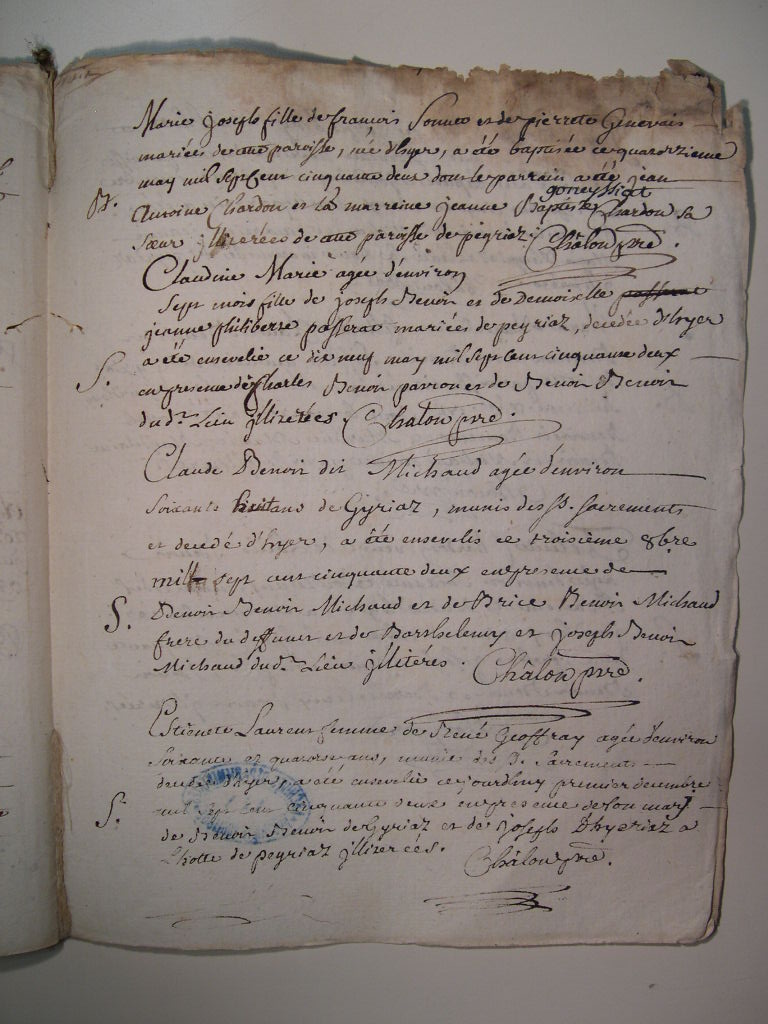 Marie joseph fille de francois Sonnet et de pierrete Genevais
mariées de cette paroisse, née d'hyer, a été baptisée ce quatorzieme
may mil sept cent cinquante deux dont le parrain a été jean
goneyssiat
B. Antoine Chardon et la marreine jeanne Baptiste Chardon sa
sœur illiterées de cette paroisse de peyriaz. Châlon ptre.
Claudine Marie agée d'environ
Sept mois fille de joseph Benoit et de Demoiselle
jeanne philiberte passerat mariées de peyriaz, decedée d'hyer
a été ensevelie ce dix neuf may mil sept cent cinquante deux
S. en presence de Charles Benoit parron et de Benoit Benoit
du dt. Lieu illiterées. Chalon ptre.
Claude Benoit dit Michaud agée d'environ
soixante huit ans de Gyriaz, munis des St. sacrements
et decedé d'hyer, a été ensevelis ce troisième 8bre
mille sept cent cinquante deux en presence de
S. Benoit Benoit Michaud et de Brice Benoit Michaud
frere du deffunct et de Barthelemy et joseph Benoit
Michaud du dt. Lieu illitérés. Châlon ptre.
Estienete Laurent femme de René Geoffray agée d'environ
soixante et quatorse ans, munie des St. Sacrements
decedée d'hyer, a été ensevelie ce jourdhuy premier decembre
S. mil sept cent cinquante deux en presence de son mary
de Benoit Benoit de Gyriaz et de joseph D'hyeriaz a
L'hotte de peyriaz illiterées. Châlon ptre.